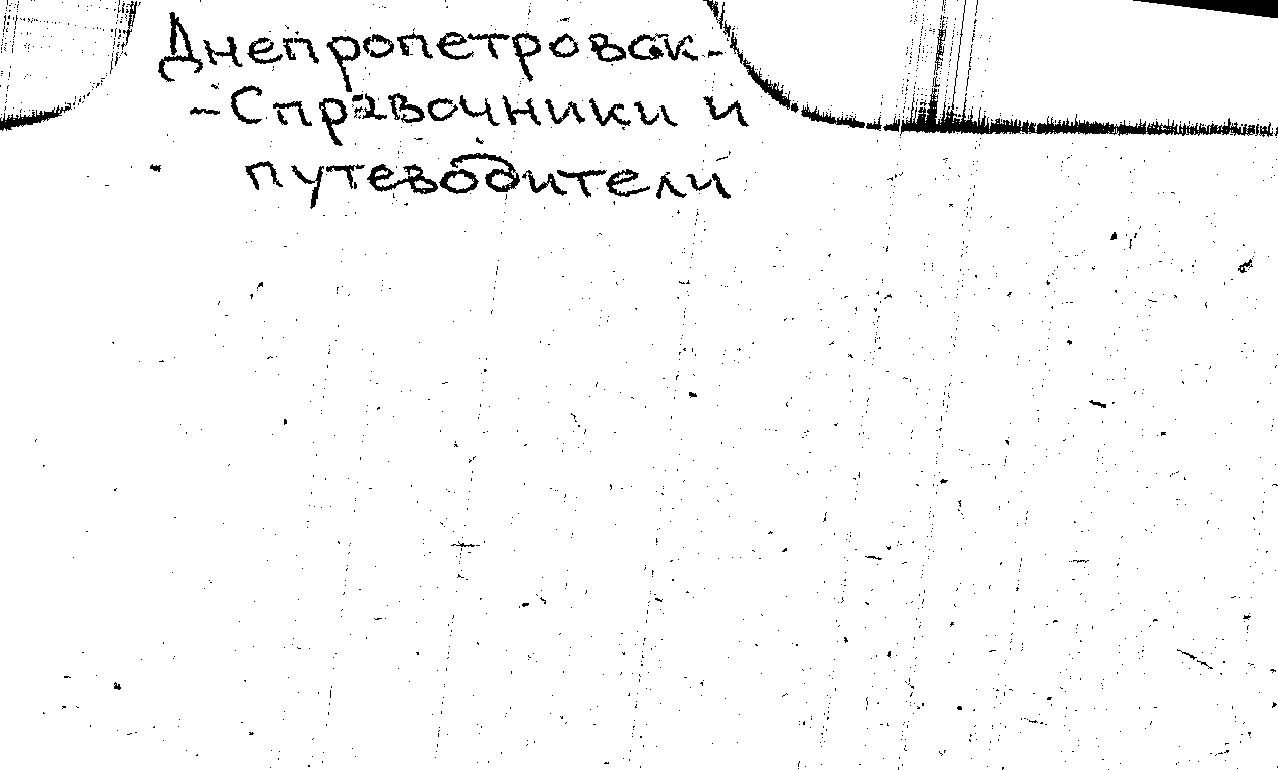 Днепропетровск-
-Справочники и
путеводители